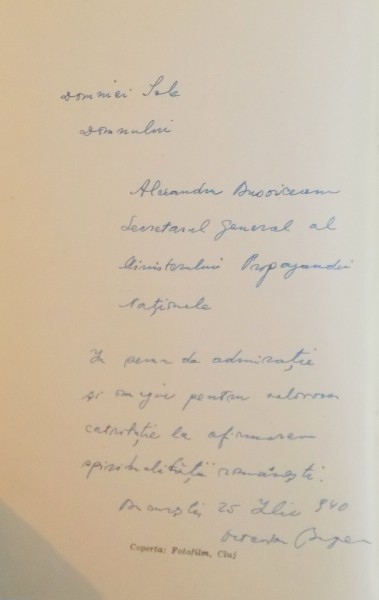 Domniei Sale
Domnului
Alexandru Busuioceanu
Secretarul general al
Ministerului Propagandei
Naționale
În semn de admirație
și omagiu pentru valoroasa
la afirmarea
spiritualității românești.
București 25 Iulie 940
Octavian
Coperta: Fotofilm, Cluj